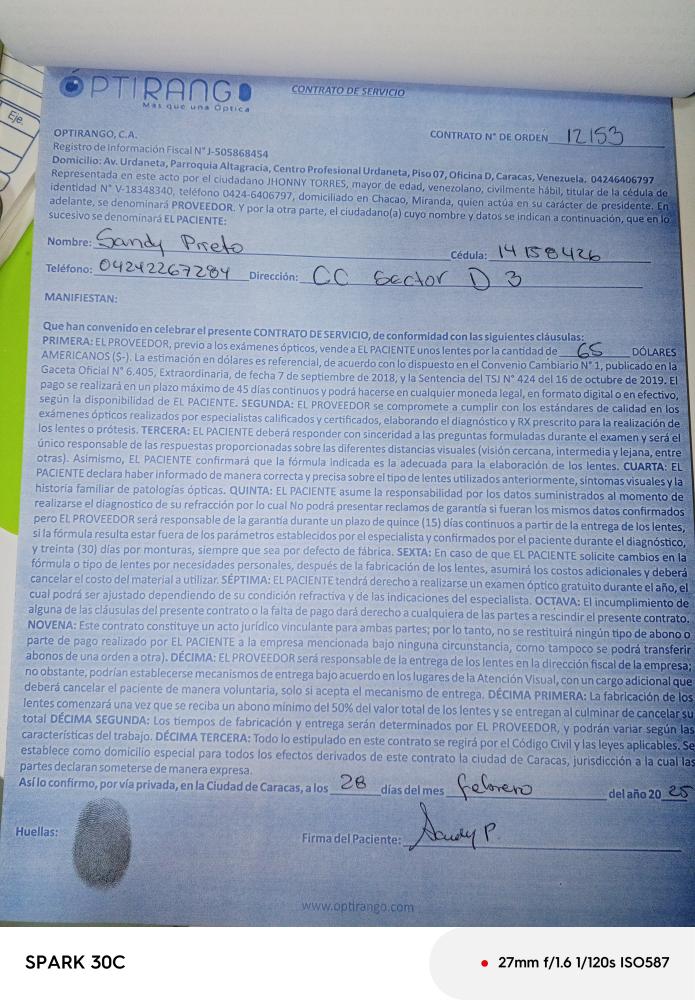 Eje.
ÓPTIRANGO
Más que una Óptica
CONTRATO DE SERVICIO
OPTIRANGO, C.A.
CONTRATO N° DE ORDEN 12153
Registro de Información Fiscal N° J-505868454
Domicilio: Av. Urdaneta, Parroquia Altagracia, Centro Profesional Urdaneta, Piso 07, Oficina D, Caracas, Venezuela. 04246406797
Representada en este acto por el ciudadano JHONNY TORRES, mayor de edad, venezolano, civilmente hábil, titular de la cédula de
identidad N° V-18348340, teléfono 0424-6406797, domiciliado en Chacao, Miranda, quien actúa en su carácter de presidente. En
adelante, se denominará PROVEEDOR. Y por la otra parte, el ciudadano(a) cuyo nombre y datos se indican a continuación, que en lo
sucesivo se denominará EL PACIENTE:
Nombre: Sandy Prieto Cédula: 14158426
Teléfono: 04242267284 Dirección: CC Sector D 3
MANIFIESTAN:
Que han convenido en celebrar el presente CONTRATO DE SERVICIO, de conformidad con las siguientes cláusulas:
PRIMERA: EL PROVEEDOR, previo a los exámenes ópticos, vende a EL PACIENTE unos lentes por la cantidad de 65 DÓLARES
AMERICANOS ($-). La estimación en dólares es referencial, de acuerdo con lo dispuesto en el Convenio Cambiario N° 1, publicado en la
Gaceta Oficial N° 6.405, Extraordinaria, de fecha 7 de septiembre de 2018, y la Sentencia del TSJ N° 424 del 16 de octubre de 2019. El
pago se realizará en un plazo máximo de 45 días continuos y podrá hacerse en cualquier moneda legal, en formato digital o en efectivo,
según la disponibilidad de EL PACIENTE. SEGUNDA: EL PROVEEDOR se compromete a cumplir con los estándares de calidad en los
exámenes ópticos realizados por especialistas calificados y certificados, elaborando el diagnóstico y RX prescrito para la realización de
los lentes o prótesis. TERCERA: EL PACIENTE deberá responder con sinceridad a las preguntas formuladas durante el examen y será el
único responsable de las respuestas proporcionadas sobre las diferentes distancias visuales (visión cercana, intermedia y lejana, entre
otras). Asimismo, EL PACIENTE confirmará que la fórmula indicada es la adecuada para la elaboración de los lentes. CUARTA: EL
PACIENTE declara haber informado de manera correcta y precisa sobre el tipo de lentes utilizados anteriormente, síntomas visuales y la
historia familiar de patologías ópticas. QUINTA: EL PACIENTE asume la responsabilidad por los datos suministrados al momento de
realizarse el diagnostico de su refracción por lo cual No podrá presentar reclamos de garantía si fueran los mismos datos confirmados
pero EL PROVEEDOR será responsable de la garantía durante un plazo de quince (15) días continuos a partir de la entrega de los lentes,
si la fórmula resulta estar fuera de los parámetros establecidos por el especialista y confirmados por el paciente durante el diagnóstico,
y treinta (30) días por monturas, siempre que sea por defecto de fábrica. SEXTA: En caso de que EL PACIENTE solicite cambios en la
fórmula o tipo de lentes por necesidades personales, después de la fabricación de los lentes, asumirá los costos adicionales y deberá
cancelar el costo del material a utilizar. SÉPTIMA: EL PACIENTE tendrá derecho a realizarse un examen óptico gratuito durante el año, el
cual podrá ser ajustado dependiendo de su condición refractiva y de las indicaciones del especialista. OCTAVA: El incumplimiento de
alguna de las cláusulas del presente contrato o la falta de pago dará derecho a cualquiera de las partes a rescindir el presente contrato.
NOVENA: Este contrato constituye un acto jurídico vinculante para ambas partes; por lo tanto, no se restituirá ningún tipo de abono o
parte de pago realizado por EL PACIENTE a la empresa mencionada bajo ninguna circunstancia, como tampoco se podrá transferir
abonos de una orden a otra). DÉCIMA: EL PROVEEDOR será responsable de la entrega de los lentes en la dirección fiscal de la empresa;
no obstante, podrían establecerse mecanismos de entrega bajo acuerdo en los lugares de la Atención Visual, con un cargo adicional que
deberá cancelar el paciente de manera voluntaria, solo si acepta el mecanismo de entrega. DÉCIMA PRIMERA: La fabricación de los
lentes comenzará una vez que se reciba un abono mínimo del 50% del valor total de los lentes y se entregan al culminar de cancelar su
total DÉCIMA SEGUNDA: Los tiempos de fabricación y entrega serán determinados por EL PROVEEDOR, y podrán variar según las
características del trabajo. DÉCIMA TERCERA: Todo lo estipulado en este contrato se regirá por el Código Civil y las leyes aplicables. Se
establece como domicilio especial para todos los efectos derivados de este contrato la ciudad de Caracas, jurisdicción a la cual las
partes declaran someterse de manera expresa.
Así lo confirmo, por vía privada, en la Ciudad de Caracas, a los 28 días del mes febrero del año 20 25
Huellas:
Firma del Paciente: Sandy P.
www.optirango.com
SPARK 30C
27mm f/1.6 1/120s ISO587